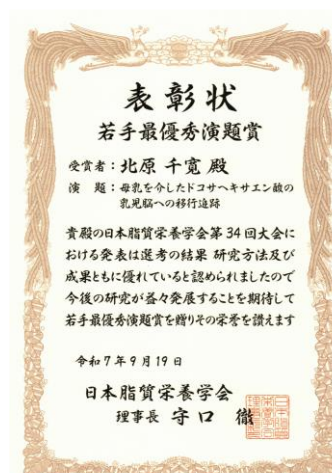 表彰状
若手最優秀演題賞
受賞者：北原 千寛 殿
演　題：母乳を介したドコサヘキサエン酸の
乳児脳への移行追跡
貴殿の日本脂質栄養学会第34回大会に
おける発表は選考の結果 研究方法及び
成果ともに優れていると認められましたので
今後の研究が益々発展することを期待して
若手最優秀演題賞を贈りその栄誉を讃えます
令和7年9月19日
日本脂質栄養学会
理事長 守口 徹